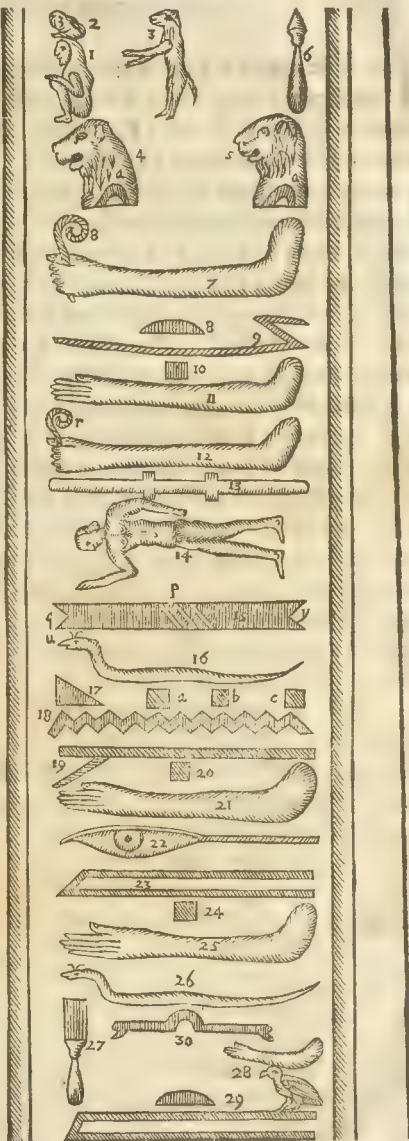 2
1
3
6
4
a
5
a
8
7
8
9
10
11
r
12
13
14
p
q
15
y
u
16
17
a
b
c
18
19
20
21
22
23
24
25
26
27
30
28
29